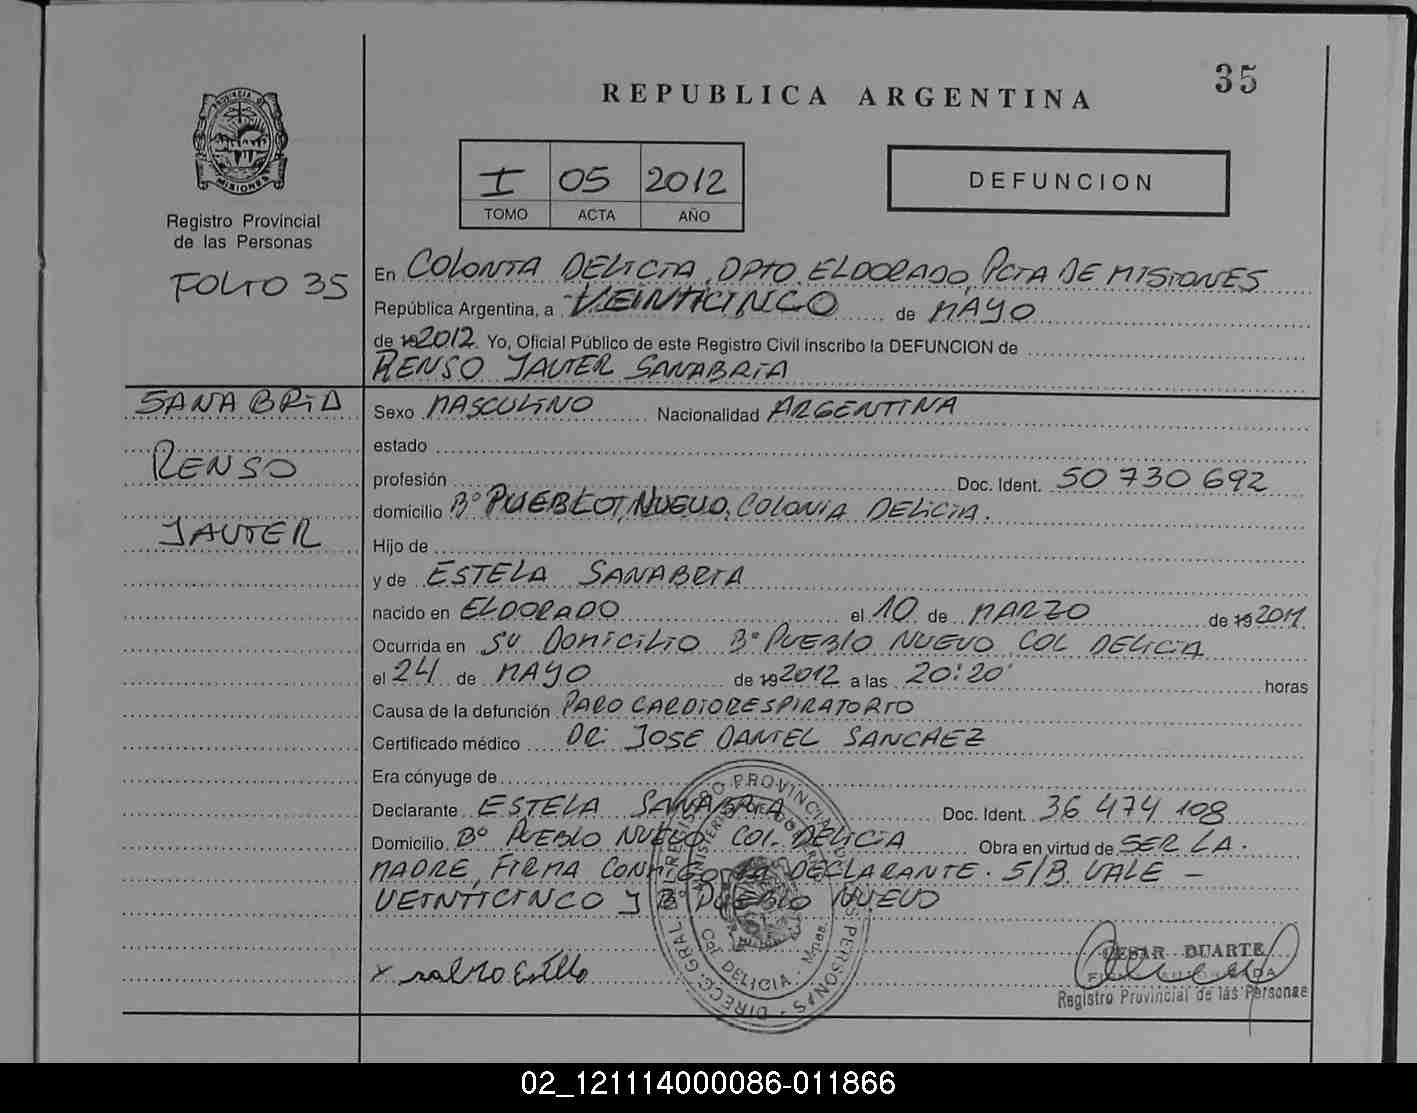 35
REPUBLICA ARGENTINA
PROVINCIA DE
MISIONES
I 05 2012
TOMO ACTA AÑO
DEFUNCION
Registro Provincial
de las Personas
FOLIO 35
En COLONIA DELICIA, DPTO. ELDORADO, PCIA DE MISIONES
República Argentina, a VEINTICINCO de MAYO
de 192012. Yo, Oficial Público de este Registro Civil inscribo la DEFUNCION de
RENSO JAVIER SANABRIA
SANABRIA
RENSO
JAVIER
Sexo MASCULINO Nacionalidad ARGENTINA
estado
profesión Doc. Ident. 50 730 692
domicilio Bº PUEBLO NUEVO, COLONIA DELICIA.
Hijo de
y de ESTELA SANABRIA
nacido en ELDORADO el 10 de MARZO de 192011
Ocurrida en SU DOMICILIO Bº PUEBLO NUEVO COL DELICIA
el 24 de MAYO de 192012 a las 20:20 horas
Causa de la defunción PARO CARDIORESPIRATORIO
Certificado médico DR: JOSE DANIEL SANCHEZ
Era cónyuge de
Declarante ESTELA SANABRIA Doc. Ident. 36 474 108
Domicilio Bº PUEBLO NUEVO COL. DELICIA Obra en virtud de SER LA
MADRE, FIRMA CONMIGO LA DECLARANTE. S/B. VALE -
VEINTICINCO Y Bº PUEBLO NUEVO
Col. DELICIA - Mnes.
CESAR DUARTE
Registro Provincial de las Personas
02_121114000086-011866